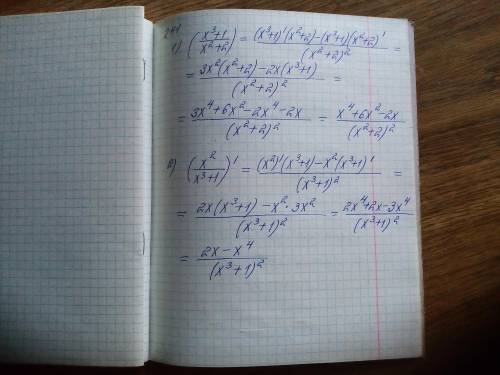 1) (x³+1 / x²+2)' = (x³+1)'(x²+2)-(x³+1)(x²+2)' / (x²+2)² =
= 3x²(x²+2)-2x(x³+1) / (x²+2)² =
= 3x⁴+6x²-2x⁴-2x / (x²+2)² = x⁴+6x²-2x / (x²+2)²
в) (x² / x³+1)' = (x²)'(x³+1)-x²(x³+1)' / (x³+1)² =
= 2x(x³+1)-x²·3x² / (x³+1)² = 2x⁴+2x-3x⁴ / (x³+1)²
= 2x-x⁴ / (x³+1)²